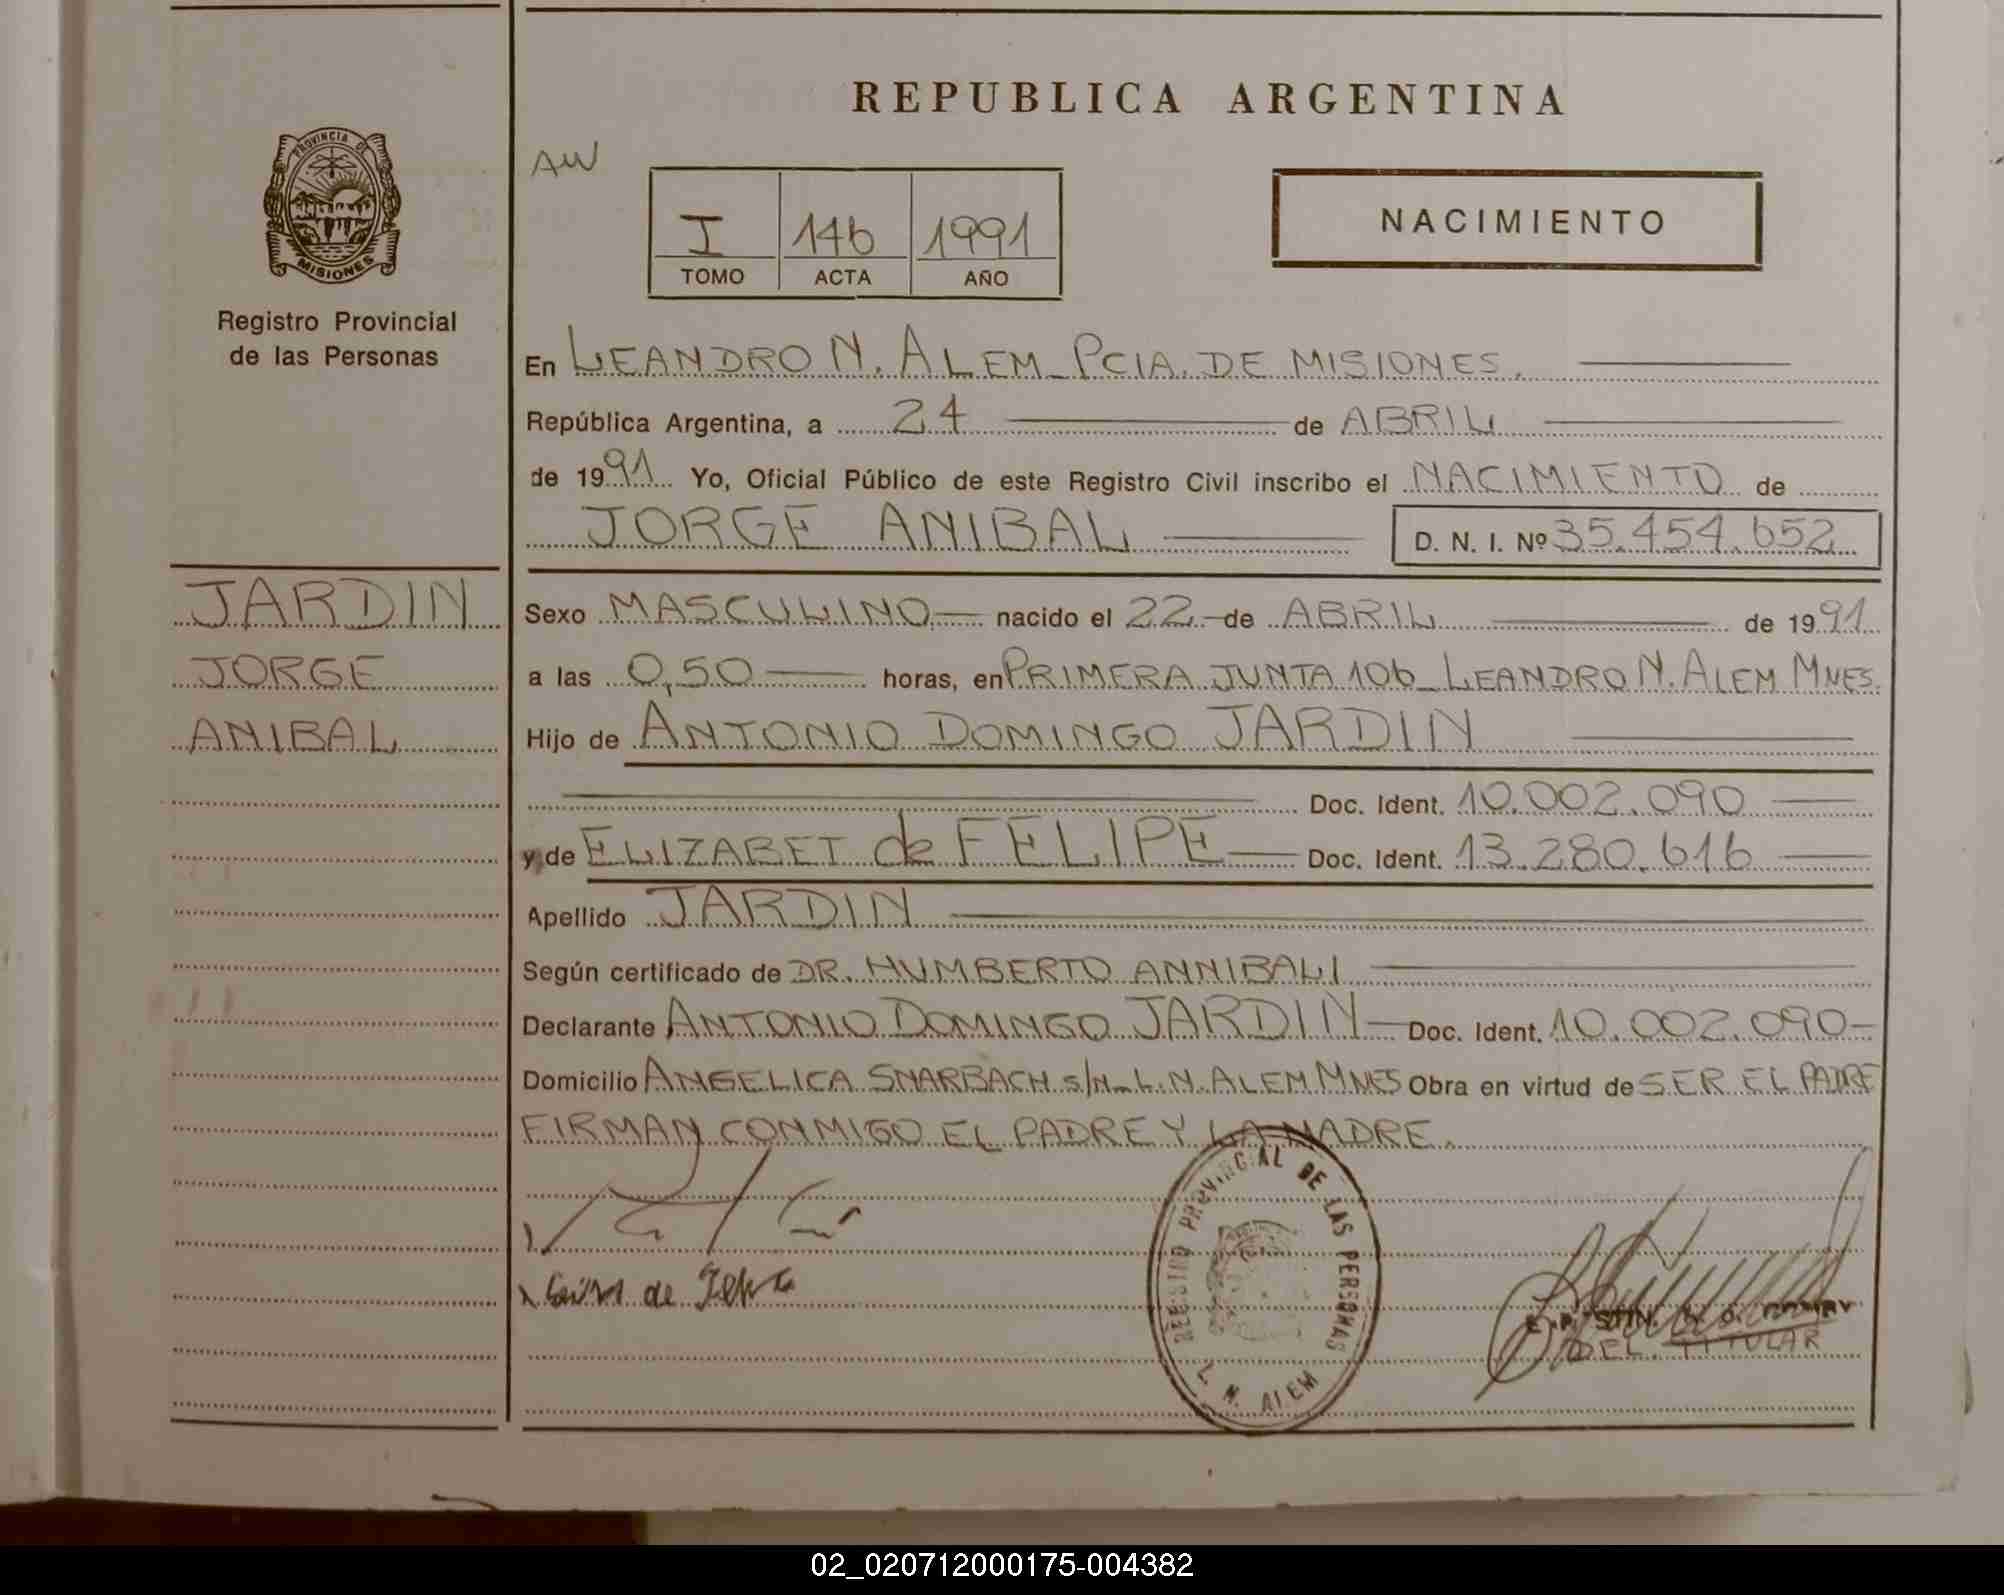 REPUBLICA ARGENTINA
PROVINCIA DE
MISIONES
Registro Provincial
de las Personas
AW
I 146 1991
TOMO ACTA AÑO
NACIMIENTO
En LEANDRO N. ALEM_PCIA. DE MISIONES.
República Argentina, a 24 de ABRIL
de 1991 Yo, Oficial Público de este Registro Civil inscribo el NACIMIENTO de
JORGE ANIBAL D. N. I. Nº 35.454.652
JARDIN
JORGE
ANIBAL
Sexo MASCULINO nacido el 22 de ABRIL de 1991
a las 0,50 horas, en PRIMERA JUNTA 106_LEANDRO N. ALEM MNES.
Hijo de ANTONIO DOMINGO JARDIN
Doc. Ident. 10.002.090
y de ELIZABET de FELIPE Doc. Ident. 13.280.616
Apellido JARDIN
Según certificado de DR. HUMBERTO ANNIBALI
Declarante ANTONIO DOMINGO JARDIN Doc. Ident. 10.002.090
Domicilio ANGELICA SNARBACH s/N_L.N. ALEM MNES Obra en virtud de SER EL PADRE
FIRMAN CONMIGO EL PADRE Y LA MADRE.
REGISTRO PROVINCIAL DE LAS PERSONAS
L. N. ALEM
de
DEL. TITULAR
02_020712000175-004382